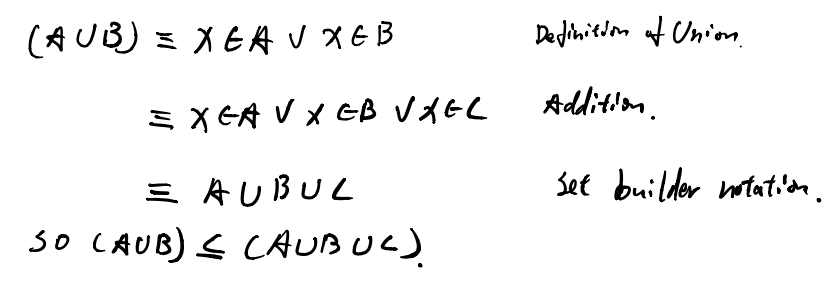 (A ∪ B) ≡ x ∈ A ∨ x ∈ B Definition of Union.
≡ x ∈ A ∨ x ∈ B ∨ x ∈ C Addition.
≡ A ∪ B ∪ C Set builder notation.
so (A ∪ B) ⊆ (A ∪ B ∪ C).